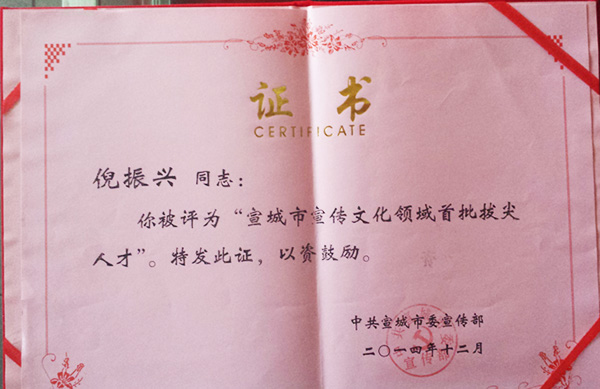 证书
CERTIFICATE
倪振兴 同志：
你被评为“宣城市宣传文化领域首批拔尖
人才”。特发此证，以资鼓励。
中共宣城市委宣传部
二〇一四年十二月
宣传部